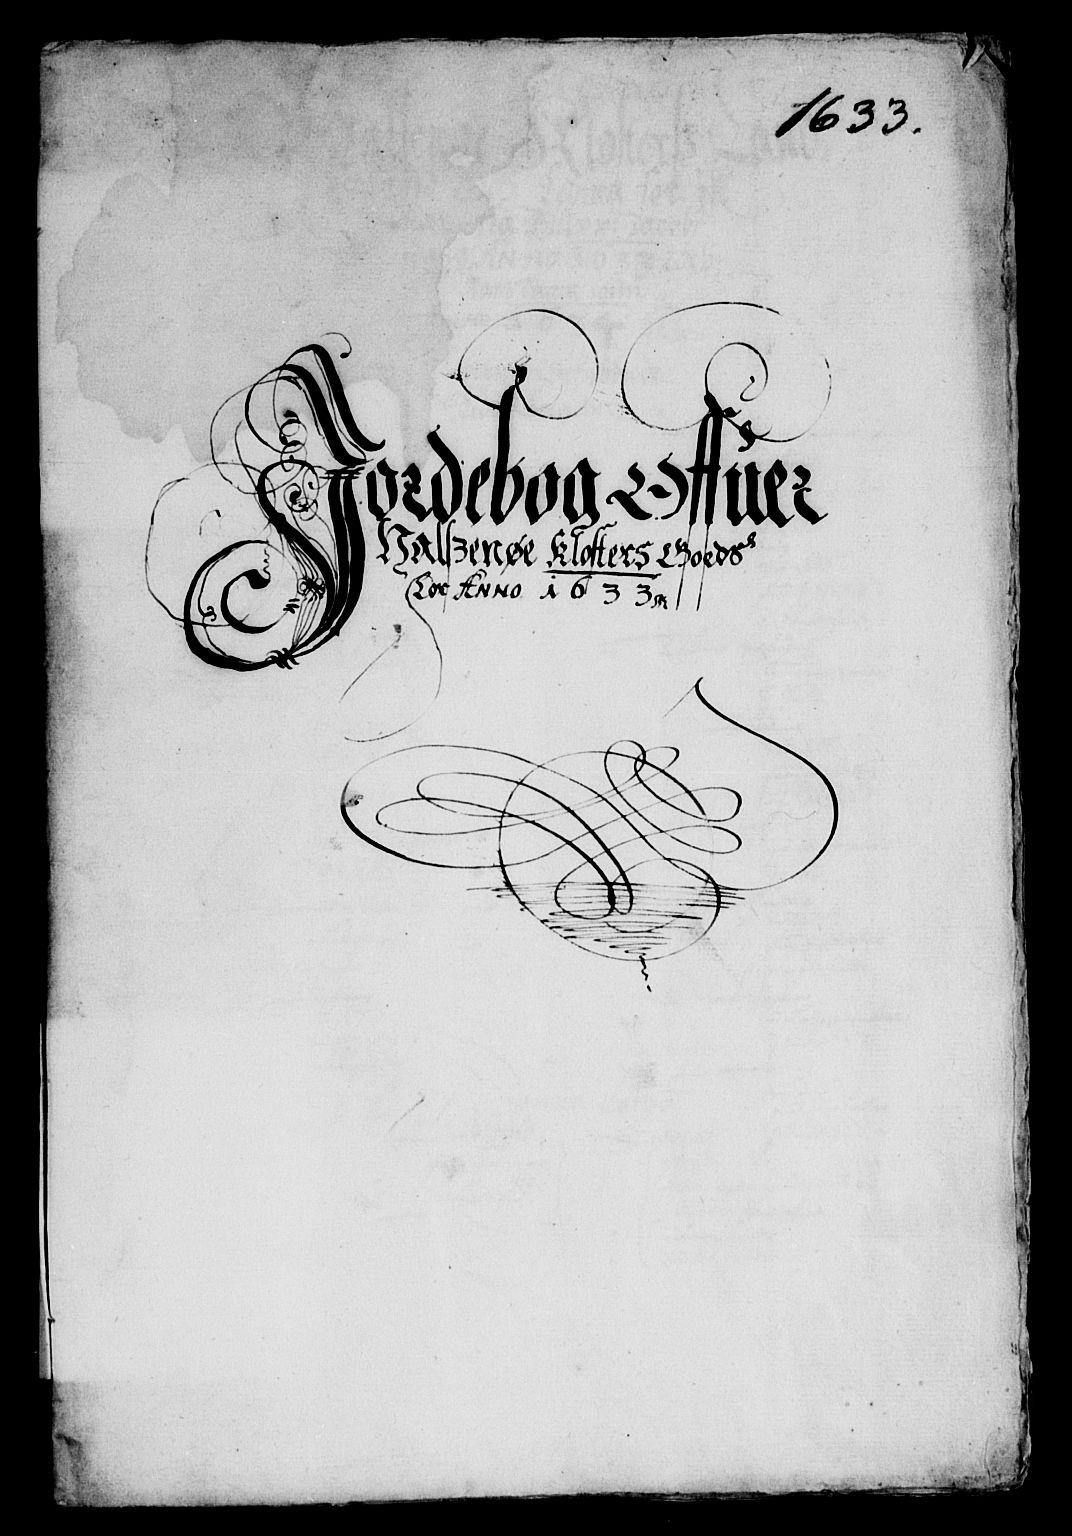 1633.
Jordebog Offuer
Halszenøe Klosters Goeds
For Anno 1633